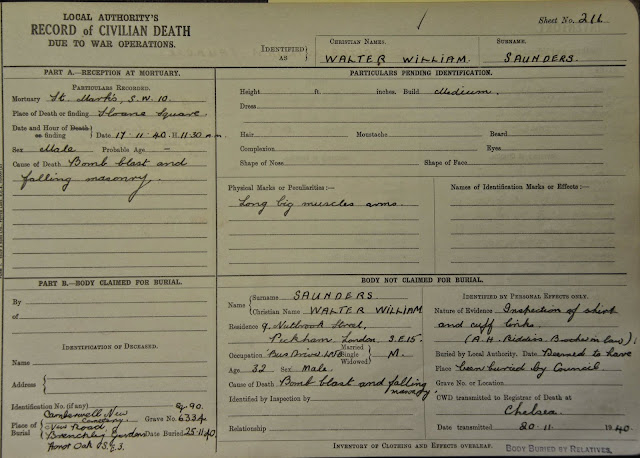 LOCAL AUTHORITY'S
RECORD OF CIVILIAN DEATH
DUE TO WAR OPERATIONS.
Sheet No. 216
IDENTIFIED AS
CHRISTIAN NAMES.
WALTER WILLIAM
SURNAME.
SAUNDERS.
PART A.—RECEPTION AT MORTUARY.
PARTICULARS RECORDED.
Mortuary St. Mark's, S.W. 10.
Place of Death or finding Sloane Square.
Date and Hour of Death or finding } Date 17.11.40. H. 11.30 a.m.
Sex Male Probable Age —
Cause of Death Bomb blast and
falling masonry.
PARTICULARS PENDING IDENTIFICATION.
Height ft. inches. Build Medium.
Dress
Hair Moustache Beard
Complexion Eyes
Shape of Nose Shape of Face
Physical Marks or Peculiarities:—
Long big muscles arms.
Names of Identification Marks or Effects:—
PART B.—BODY CLAIMED FOR BURIAL.
By
of
IDENTIFICATION OF DECEASED.
Name
Address {
Identification No. (if any)
90.
Place of Burial {
Camberwell New
Cemetery
New Road
Brenchley Gardens
Honor Oak S.E.23.
Grave No. 6334
Date Buried 25.11.40.
BODY NOT CLAIMED FOR BURIAL.
Name { Surname SAUNDERS
Christian Name WALTER WILLIAM
Residence 9. Nutbrook Street,
Peckham, London. S.E.15.
Occupation Bus Driver Married Single Widowed } M.
Age 32 Sex Male
Cause of Death Bomb blast and falling
masonry
Identified by Inspection by
Relationship
IDENTIFIED BY PERSONAL EFFECTS ONLY.
Nature of Evidence Inspection of shirt
and cuff links.
(A.H. Brother in law)
Buried by Local Authority. Date Deemed to have
Place been buried by Council
Grave No. or Location
CWD transmitted to Registrar of Death at
Chelsea.
Date transmitted 20.11. 1940
INVENTORY OF CLOTHING AND EFFECTS OVERLEAF.
BODY BURIED BY RELATIVES